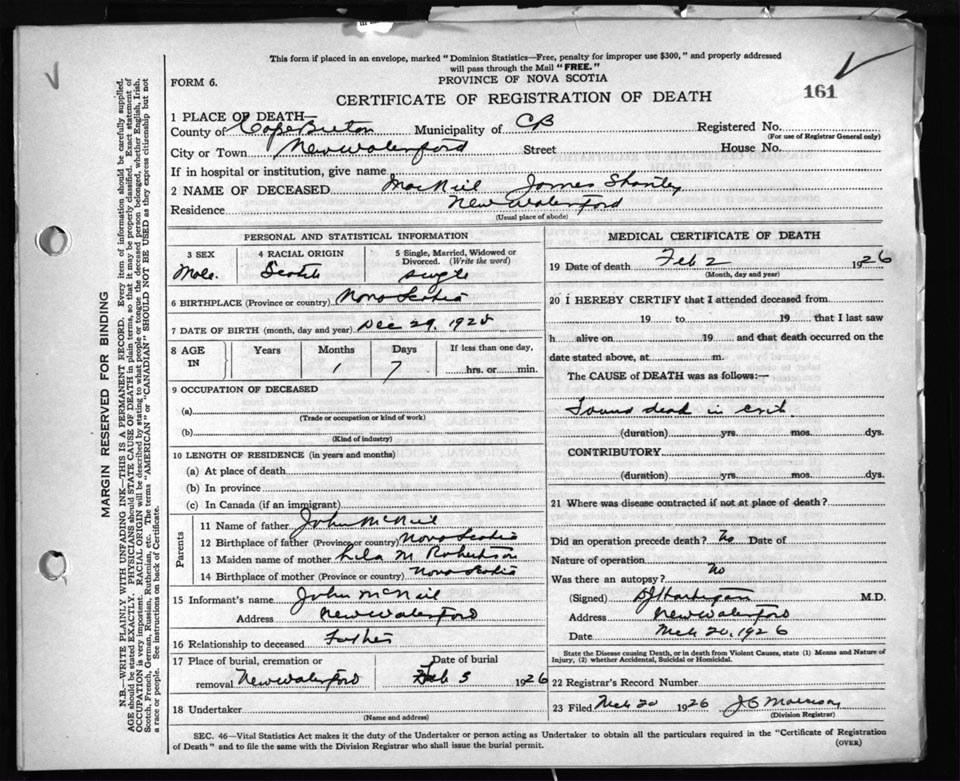 This form if placed in an envelope, marked "Dominion Statistics—Free, penalty for improper use $300," and properly addressed
will pass through the Mail "FREE."
FORM 6.
PROVINCE OF NOVA SCOTIA
161
CERTIFICATE OF REGISTRATION OF DEATH
1 PLACE OF DEATH—
County of Cape Breton Municipality of CB Registered No.
(For use of Registrar General only)
City or Town New Waterford Street House No.
If in hospital or institution, give name
2 NAME OF DECEASED MacNeil James Stanley
Residence New Waterford
(Usual place of abode)
PERSONAL AND STATISTICAL INFORMATION
3 SEX 4 RACIAL ORIGIN 5 Single, Married, Widowed or Divorced. (Write the word)
Male. Scotch single
6 BIRTHPLACE (Province or country) Nova Scotia
7 DATE OF BIRTH (month, day and year) Dec 29, 1925
8 AGE IN Years Months Days If less than one day,
1 7 hrs. or min.
9 OCCUPATION OF DECEASED
(a)
(Trade or occupation or kind of work)
(b)
(Kind of industry)
10 LENGTH OF RESIDENCE (in years and months)
(a) At place of death
(b) In province
(c) In Canada (if an immigrant)
Parents
11 Name of father John McNeil
12 Birthplace of father (Province or country) Nova Scotia
13 Maiden name of mother Lila M Robertson
14 Birthplace of mother (Province or country) Nova Scotia
15 Informant's name John McNeil
Address New Waterford
16 Relationship to deceased Father
17 Place of burial, cremation or removal New Waterford Date of burial Feb 5 1926
18 Undertaker
(Name and address)
MEDICAL CERTIFICATE OF DEATH
19 Date of death Feb 2 1926
(Month, day and year)
20 I HEREBY CERTIFY that I attended deceased from
19 to 19 that I last saw
h alive on 19 and that death occurred on the
date stated above, at m.
The CAUSE of DEATH was as follows:—
Found dead in crib
(duration) yrs. mos. dys.
CONTRIBUTORY
(duration) yrs. mos. dys.
21 Where was disease contracted if not at place of death?
Did an operation precede death? No Date of
Nature of operation
Was there an autopsy? No
(Signed) M.D.
Address New Waterford
Date Mch 20, 1926
State the Disease causing Death, or in death from Violent Causes, state (1) Means and Nature of
Injury, (2) whether Accidental, Suicidal or Homicidal.
22 Registrar's Record Number
23 Filed Mch 20 1926
(Division Registrar)
SEC. 46—Vital Statistics Act makes it the duty of the Undertaker or person acting as Undertaker to obtain all the particulars required in the "Certificate of Registration
of Death" and to file the same with the Division Registrar who shall issue the burial permit. (OVER)
MARGIN RESERVED FOR BINDING
N.B.—WRITE PLAINLY WITH UNFADING INK—THIS IS A PERMANENT RECORD. Every item of information should be carefully supplied.
AGE should be stated EXACTLY. PHYSICIANS should STATE CAUSE OF DEATH in plain terms, so that it may be properly classified. Exact statement of
OCCUPATION is very important. RACIAL ORIGIN will be described by stating to what people or tongue the deceased person belonged, whether English, Irish,
Scotch, French, German, Russian, Ruthenian, etc. The terms "AMERICAN" or "CANADIAN" SHOULD NOT BE USED as they express citizenship but not
a race or people. See instructions on back of Certificate.